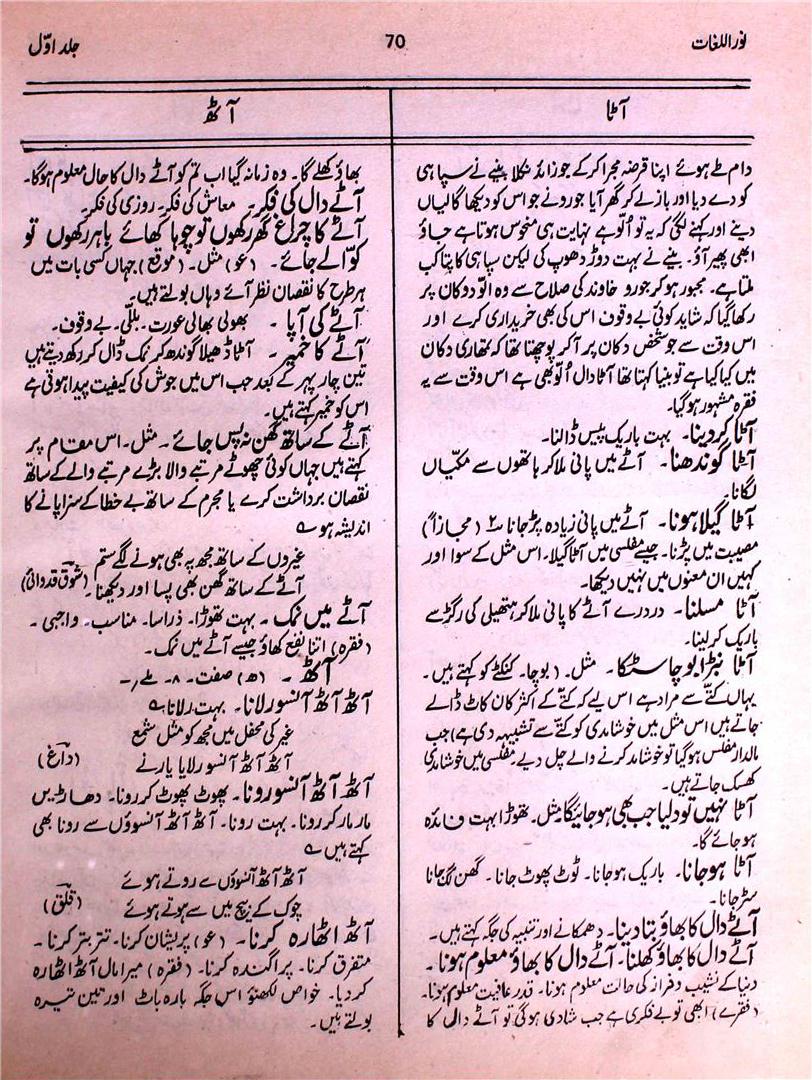 نور اللغات
70
جلد اوّل
آٹا
دام طے ہوئے اپنا قرضہ مجرا کرکے جو زائد نکلا بنیے نے سپاہی
کو دے دیا اور باز لے کر گھر آیا جورو نے جو اس کو دیکھا گالیاں
دینے اور کہنے لگی کہ یہ تو اُلّو ہے نہایت ہی منحوس ہوتا ہے جاؤ
ابھی پھیر آؤ۔ بنیے نے بہت دوڑ دھوپ کی لیکن سپاہی کا پتا کب
ملتا ہے۔ مجبور ہوکر جورو خاوند کی صلاح سے وہ الّو دوکان پر
رکھا گیا کہ شاید کوئی بے وقوف اس کی بھی خریداری کرے اور
اس وقت سے جو شخص دکان پر آکر پوچھتا تھا کہ تمھاری دکان
میں کیا کیا ہے تو بنیا کہتا تھا آٹا دال اُلّو بھی ہے اس وقت سے یہ
فقرہ مشہور ہوگیا۔
آٹا کردینا۔ بہت باریک پیس ڈالنا۔
آٹا گوندھنا۔ آٹے میں پانی ملاکر ہاتھوں سے مکّیاں
لگانا۔
آٹا گیلا ہونا۔ آٹے میں پانی زیادہ پڑجانا ۲ (مجازاً)
مصیبت میں پڑنا۔ جیسے مفلسی میں آٹا گیلا۔ اس مثل کے سوا اور
کہیں ان معنوں میں نہیں دیکھا۔
آٹا مسلنا۔ دردرے آٹے کا پانی ملاکر ہتھیلی کی رگڑ سے
باریک کرلینا۔
آٹا نبڑا بوچا سٹکا۔ مثل۔ (بوچا۔ کنکٹے کو کہتے ہیں۔
یہاں کتّے سے مراد ہے اس لیے کہ کتّے کے اکثر کان کاٹ ڈالے
جاتے ہیں اس مثل میں خوشامدی کو کتّے سے تشبیہہ دی ہے) جب
مالدار مفلس ہوگیا تو خوشامد کرنے والے چل دیے مفلسی میں خوشامدی
کھسک جاتے ہیں۔
آٹا نہیں تو دلیا جب بھی ہوجائیگا مثل۔ تھوڑا بہت فائدہ
ہوجائے گا۔
آٹا ہوجانا۔ باریک ہوجانا۔ ٹوٹ پھوٹ جانا۔ گھن لگ جانا
سڑجانا۔
آٹے دال کا بھاؤ بتا دینا۔ دھمکانے اور تنبیہ کی جگہ کہتے ہیں۔
آٹے دال کا بھاؤ کھلنا۔ آٹے دال کا بھاؤ معلوم ہونا۔
دنیا کے نشیب و فراز کی حالت معلوم ہونا۔ قدر عافیت معلوم ہونا۔
(فقرے) ابھی تو بے فکری ہے جب شادی ہوگی تو آٹے دال کا
آٹھ
بھاؤ کھلے گا۔ وہ زمانہ گیا اب تم کو آٹے دال کا حال معلوم ہوگا۔
آٹے دال کی فکر۔ معاش کی فکر۔ روزی کی فکر۔
آٹے کا چراغ گھر رکھوں تو چوہا کھائے باہر رکھوں تو
کوّا لے جائے۔ (عو) مثل۔ (موقع) جہاں کسی بات میں
ہر طرح کا نقصان نظر آئے وہاں بولتے ہیں۔
آٹے کی آپا۔ بھولی بھالی عورت۔ بلّلی۔ بے وقوف۔
آٹے کا خمیر۔ آٹا ڈھیلا گوندھ کر نمک ڈال کر رکھ دیتے ہیں
تین چار پہر کے بعد جب اس میں جوش کی کیفیت پیدا ہوتی ہے
اس کو خمیر کہتے ہیں۔
آٹے کے ساتھ گھن نہ پس جائے۔ مثل۔ اس مقام پر
کہتے ہیں جہاں کوئی چھوٹے مرتبے والا بڑے مرتبے والے کے ساتھ
نقصان برداشت کرے یا مجرم کے ساتھ بے خطا کے سزا پانے کا
اندیشہ ہو ؎
غیروں کے ساتھ مجھ پہ بھی ہونے لگے ستم
آٹے کے ساتھ گھن بھی پسا اور دیکھنا۔ (شوق قدوائی)
آٹے میں نمک۔ بہت تھوڑا۔ ذرا سا۔ مناسب۔ واجبی۔
(فقرہ) اتنا نفع کھاؤ جیسے آٹے میں نمک۔
آٹھ۔ (ھ) صفت۔ ۸۔
آٹھ آٹھ آنسو رلانا۔ بہت رلانا ؎
غیر کی محفل میں مجھ کو مثل شمع
آٹھ آٹھ آنسو رلایا یار نے (داغ)
آٹھ آٹھ آنسو رونا۔ پھوٹ پھوٹ کر رونا۔ دھاڑیں
مار مار کر رونا۔ بہت رونا۔ آٹھ آٹھ آنسوؤں سے رونا بھی
کہتے ہیں ؎
آٹھ آٹھ آنسوؤں سے روتے ہوئے
چوک کے بیچ میں سے ہوتے ہوئے (قلق)
آٹھ اٹھارہ کرنا۔ (عو) پریشان کرنا۔ تتر بتر کرنا۔
متفرق کرنا۔ پراگندہ کرنا۔ (فقرہ) میرا مال آٹھ اٹھارہ
کردیا۔ خواص لکھنؤ اس جگہ بارہ باٹ اور تین تیرہ
بولتے ہیں۔